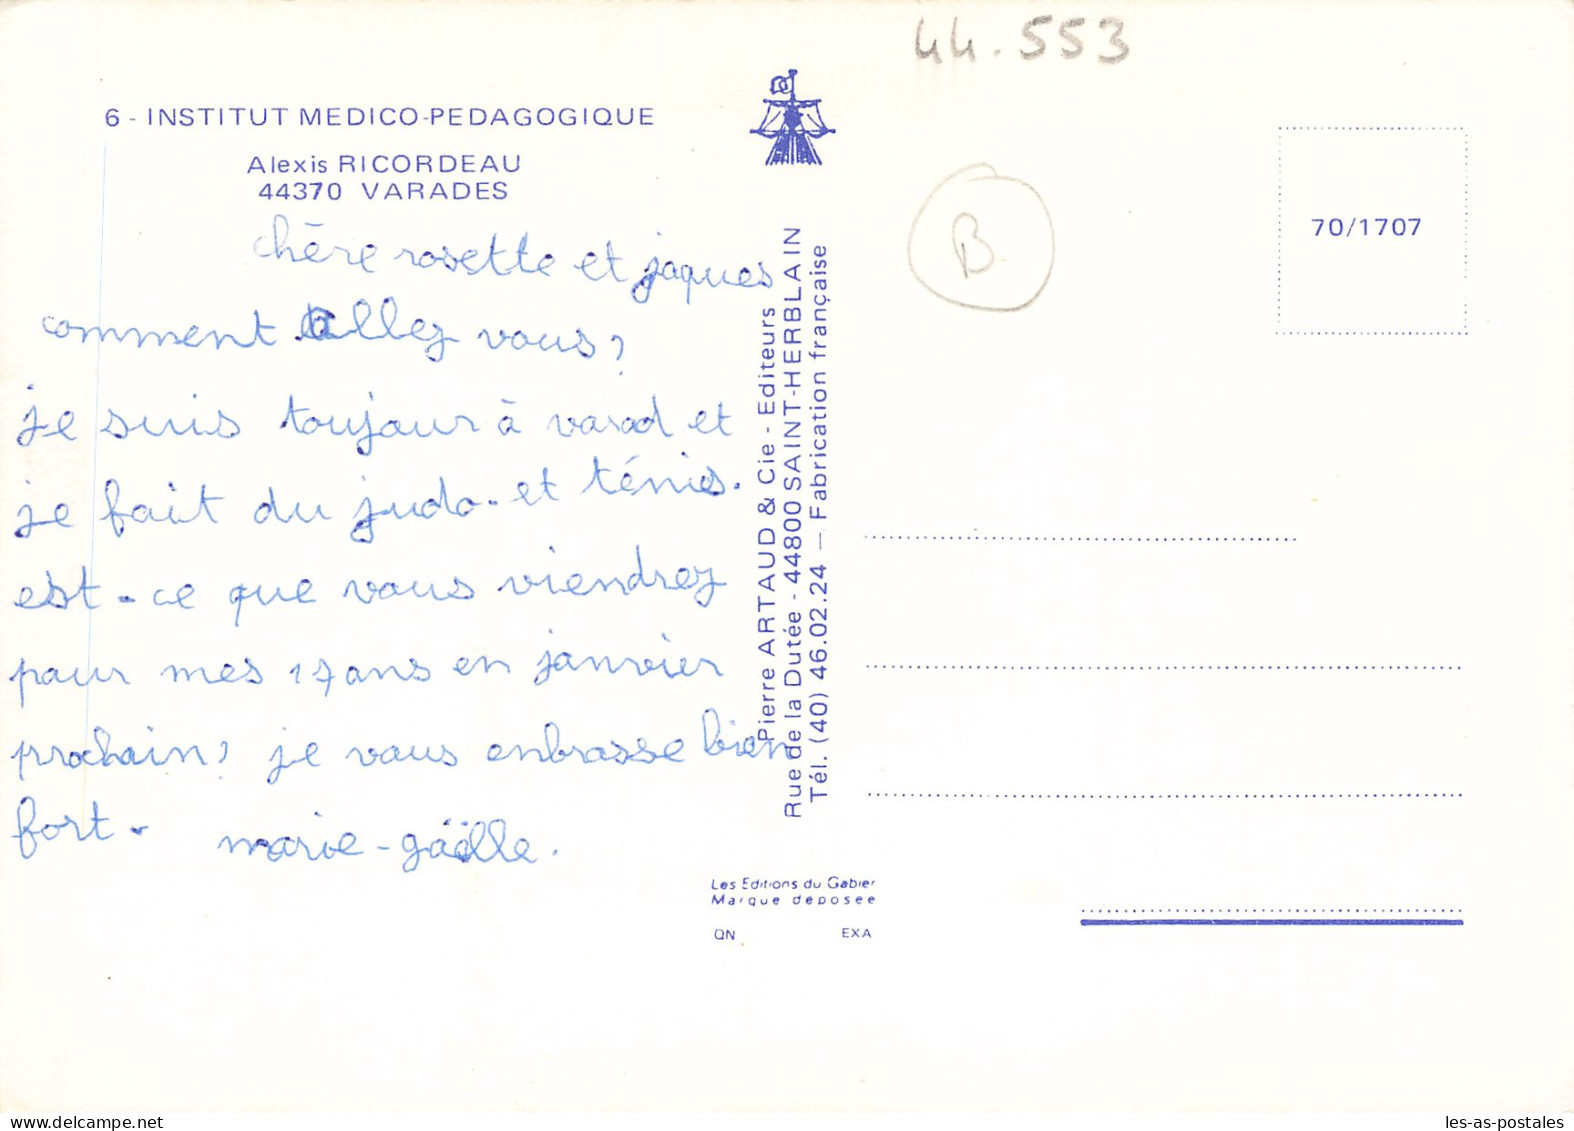 44.553
6 - INSTITUT MEDICO-PEDAGOGIQUE
Alexis RICORDEAU
44370 VARADES
chère rosette et jaques
comment allez vous ?
je suis toujour à varad et
je fait du judo - et ténis.
est - ce que vous viendrez
pour mes 17 ans en janvier
prochain ? je vous enbrasse bien
fort -
marie - gäëlle.
Pierre ARTAUD & Cie - Editeurs
Rue de la Dutée - 44800 SAINT-HERBLAIN
Tél. (40) 46.02.24 — Fabrication française
Les Editions du Gabier
Marque déposée
QN EXA
B.
70/1707
les-as-postales